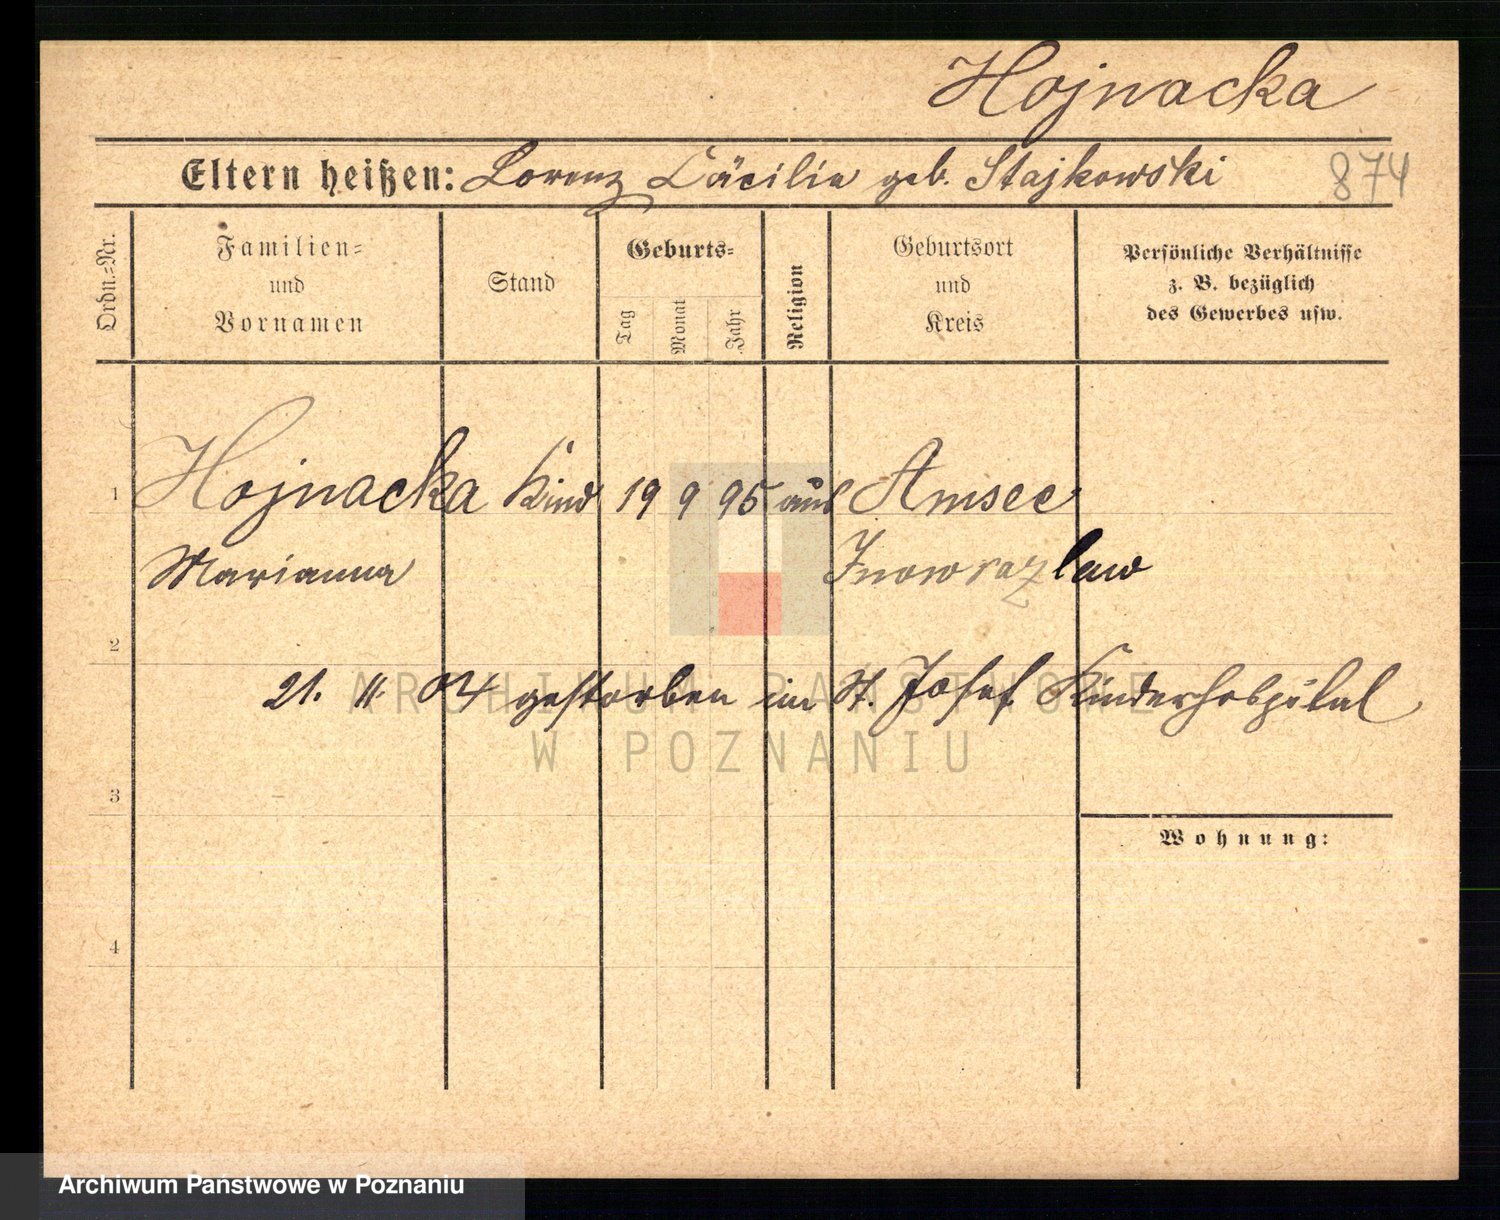 Hojnacka
Eltern heißen: Lorenz Cäcilia geb. Stajkowski 874
Ordn.=Nr.
Familien=
und
Vornamen
Stand
Geburts=
Tag
Monat
Jahr
Religion
Geburtsort
und
Kreis
Persönliche Verhältnisse
z. B. bezüglich
des Gewerbes usw.
1 Hojnacka Kind 19 9 95 aus Amsee
Marianna Inowrazlaw
2
21. 11. 04 gestorben im St. Josef Kinderhospital
ARCHIWUM PAŃSTWOWE
W POZNANIU
3
Wohnung:
4
Archiwum Państwowe w Poznaniu